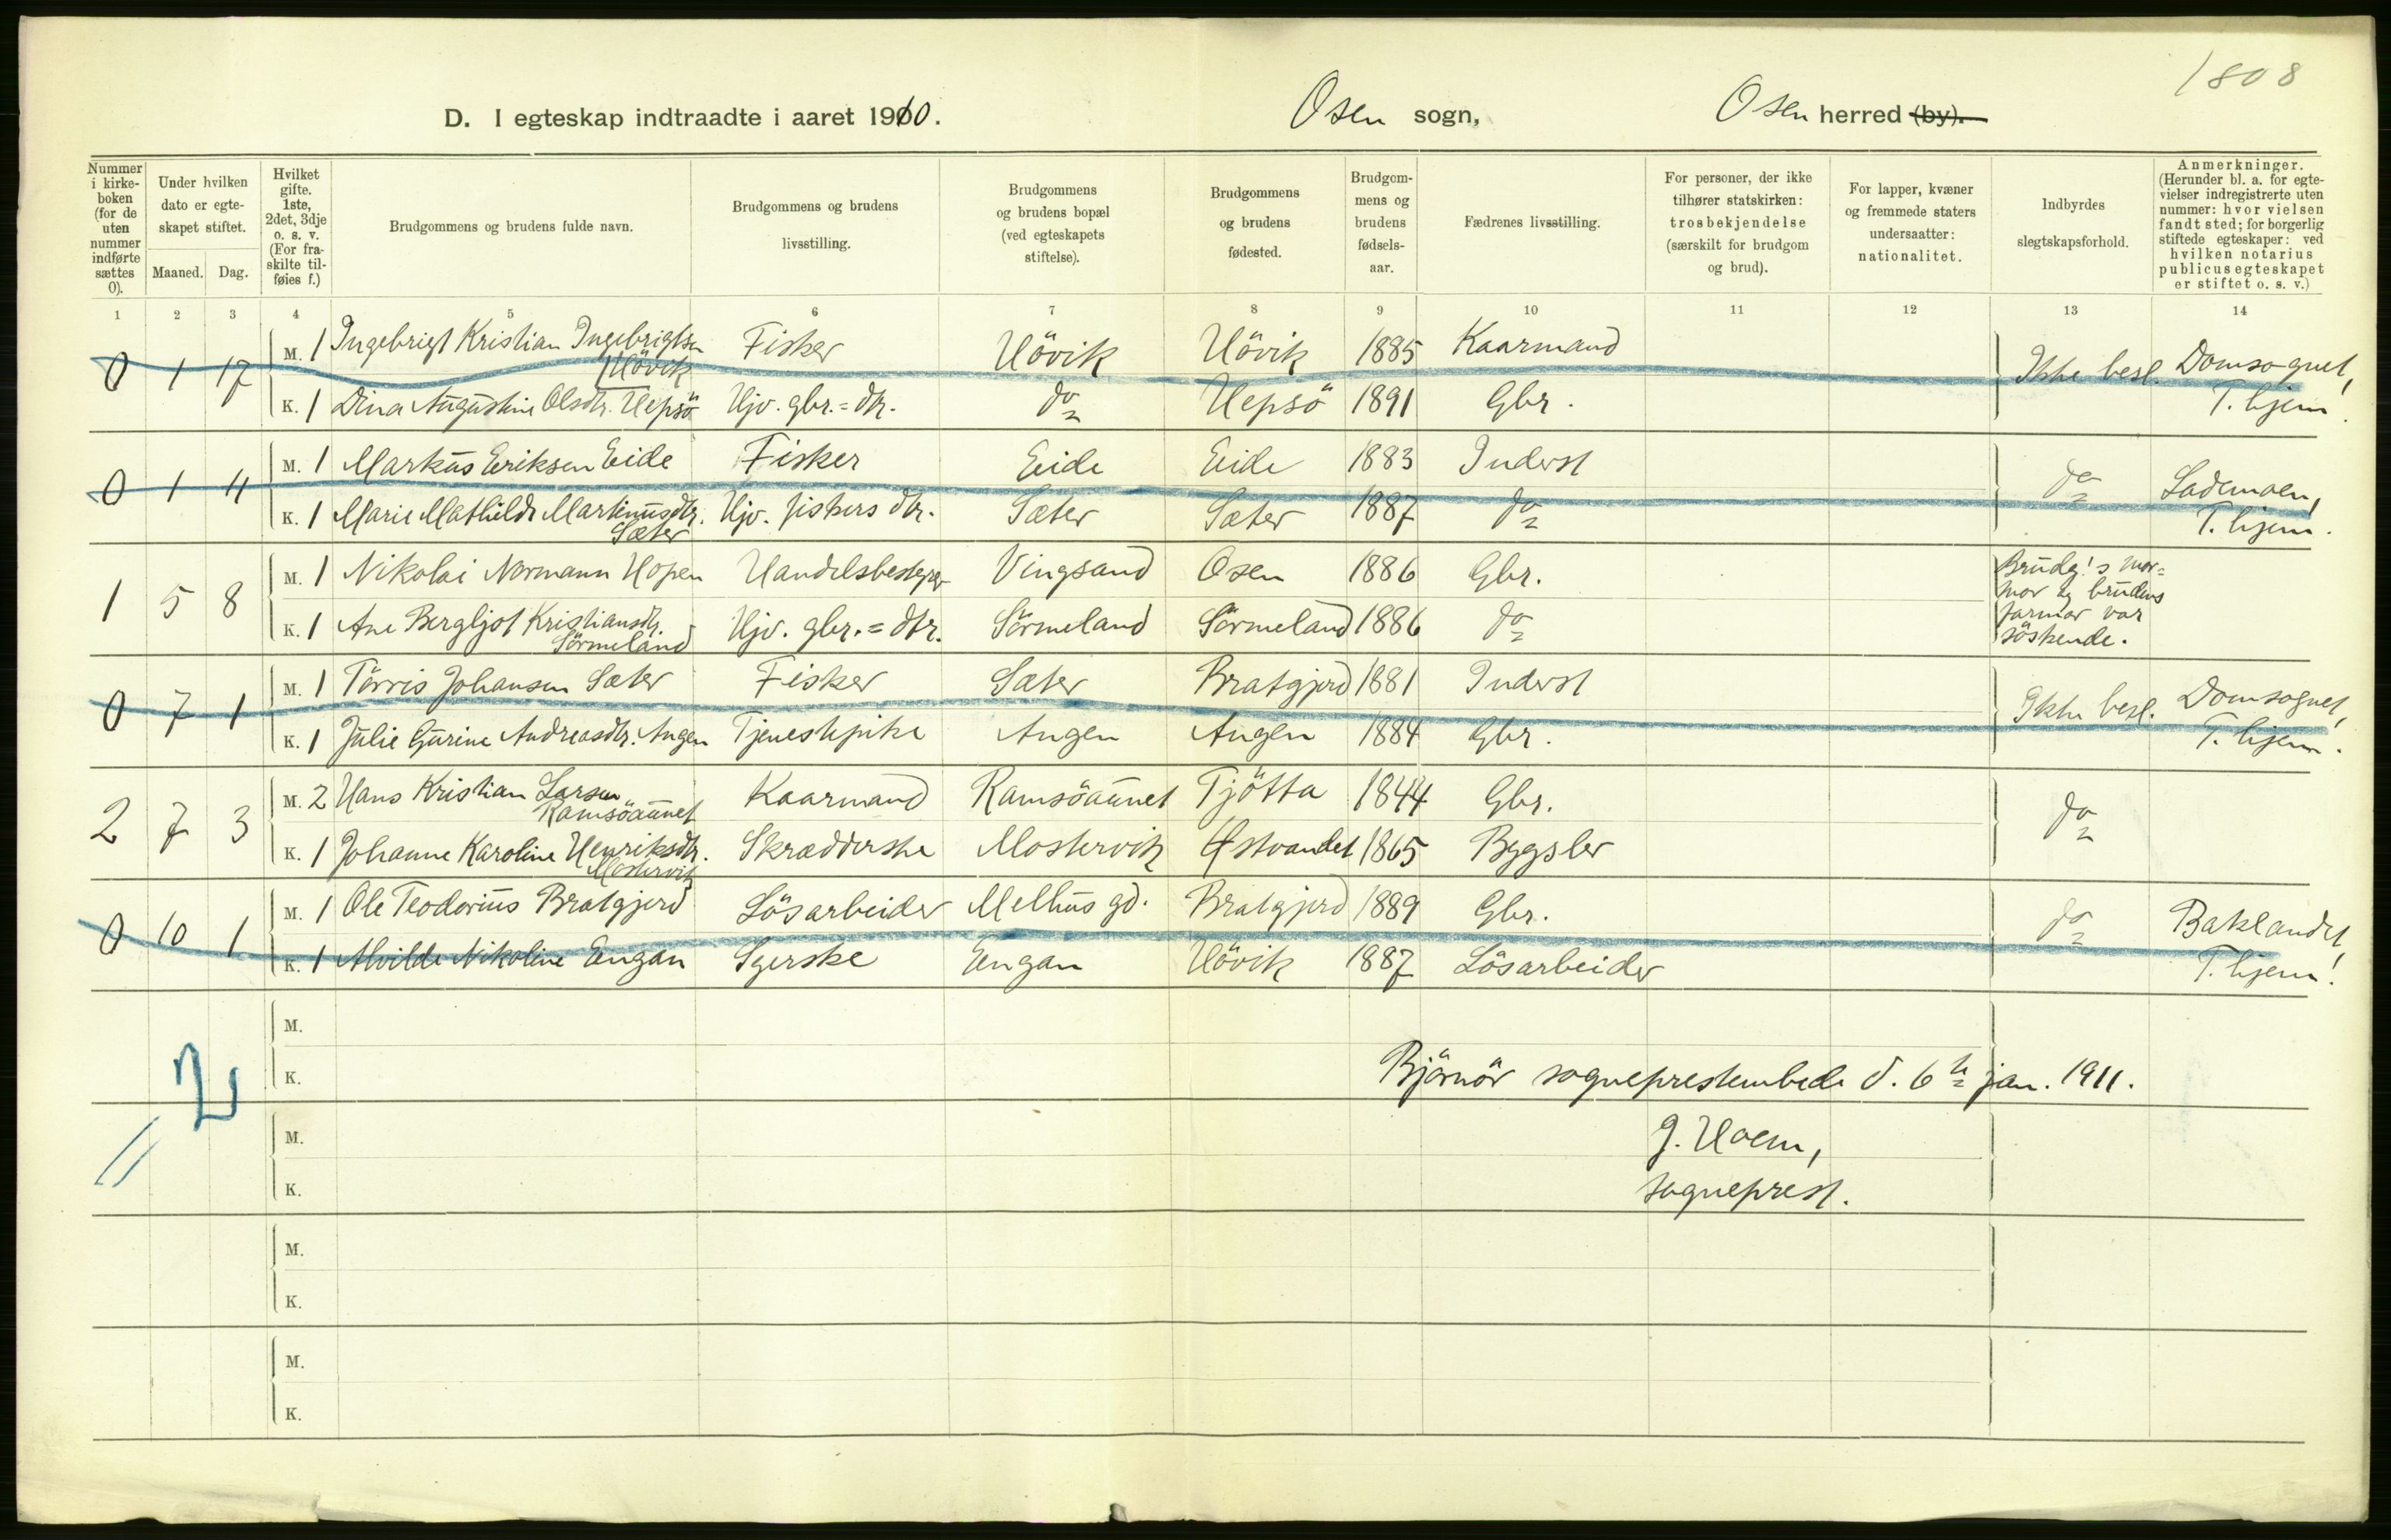 1808
D. I egteskap indtraadte i aaret 1910. Osen sogn, Osen herred (by).
Nummer i kirkeboken (for de uten nummer indførte sættes 0).
Under hvilken dato er egteskapet stiftet.
Maaned. Dag.
Hvilket gifte. 1ste, 2det, 3dje o. s. v. (For fraskilte tilføies f.)
Brudgommens og brudens fulde navn.
Brudgommens og brudens livsstilling.
Brudgommens og brudens bopæl (ved egteskapets stiftelse).
Brudgommens og brudens fødested.
Brudgommens og brudens fødselsaar.
Fædrenes livsstilling.
For personer, der ikke tilhører statskirken: trosbekjendelse (særskilt for brudgom og brud).
For lapper, kvæner og fremmede staters undersaatter: nationalitet.
Indbyrdes slegtskapsforhold.
Anmerkninger. (Herunder bl. a. for egtevielser indregistrerte uten nummer: hvor vielsen fandt sted; for borgerlig stiftede egteskaper: ved hvilken notarius publicus egteskapet er stiftet o. s. v.)
1 2 3 4 5 6 7 8 9 10 11 12 13 14
0 1 17 M. 1 Ingebrigt Kristian Ingebrigtsen Hövik Fisker Hövik Hövik 1885 Kaarmand Ikke besl. Domsognet,
K. 1 Dina Augustine Olsdtr. Hepsö Hjv. gbr.=dtr. do Hepsö 1891 Gbr. T.hjem.
0 1 4 M. 1 Markus Eriksen Eide Fisker Eide Eide 1883 Inderst do Lademoen,
K. 1 Marie Mathilde Martinusdtr. Sæter Hjv. fiskers dtr. Sæter Sæter 1887 do T.hjem.
1 5 8 M. 1 Nikolai Normann Hopen Handelsbestyrer Vingsand Osen 1886 Gbr. Brudg!s mor=
mor og brudens
farmor var
söskende.
K. 1 Ane Bergljot Kristiansdtr. Sörmeland Hjv. gbr.=dtr. Sörmeland Sörmeland 1886 do
0 7 1 M. 1 Törris Johansen Sæter Fisker Sæter Bratgjerd 1881 Inderst Ikke besl. Domsognet,
K. 1 Julie Gurine Andreasdtr. Angen Tjenestepike Angen Angen 1884 Gbr. T.hjem.
2 7 3 M. 2 Hans Kristian Larsen Ramsöaunet Kaarmand Ramsöaunet Tjötta 1844 Gbr. do
K. 1 Johanne Karoline Henriksdtr. Mostervik Skrædderske Mostervik Østvandet 1865 Bygsler
0 10 1 M. 1 Ole Teodorius Bratgjerd Lösarbeider Melhus gd. Bratgjerd 1889 Gbr. do Baklandet
K. 1 Alvilde Nikoline Engan Syerske Engan Hövik 1887 Lösarbeider T.hjem!
M.
K. Björnör sogneprestembede d. 6te jan. 1911.
2
M. J. Hoem,
K. sogneprest.
M.
K.
M.
K.